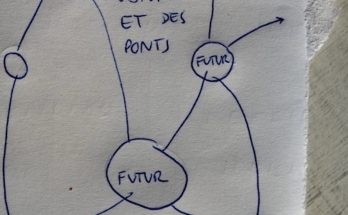 ET DES
PONTS
FUTUR
FUTUR